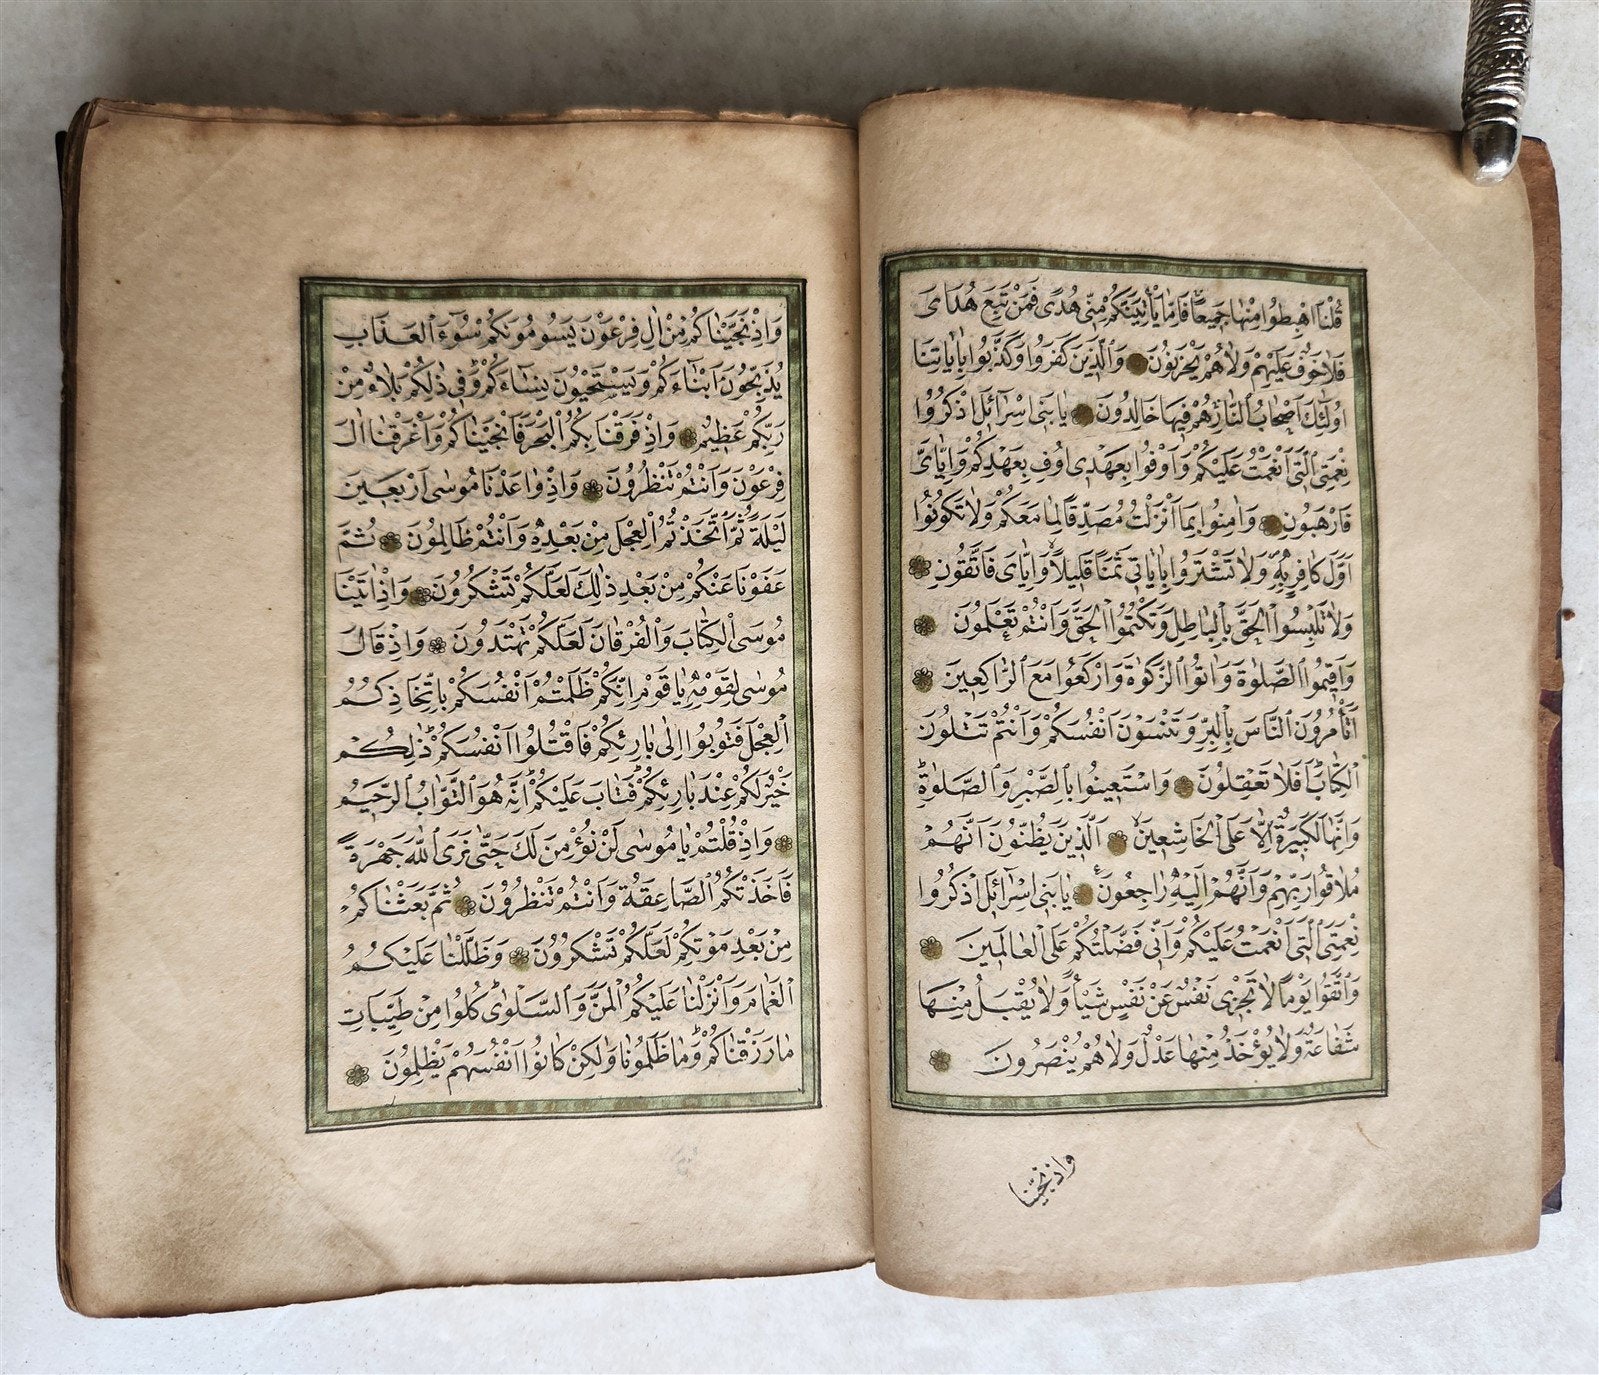 قُلْنَا اهْبِطُوا مِنْهَا جَمِيعًا فَاِمَّا يَأْتِيَنَّكُمْ مِنِّي هُدًى فَمَنْ تَبِعَ هُدَايَ
فَلَا خَوْفٌ عَلَيْهِمْ وَلَا هُمْ يَحْزَنُونَ وَالَّذِينَ كَفَرُوا وَكَذَّبُوا بِاٰيَاتِنَا
اُولٰئِكَ اَصْحَابُ النَّارِ هُمْ فِيهَا خَالِدُونَ يَا بَنِي اِسْرَائِلَ اذْكُرُوا
نِعْمَتِيَ الَّتِي اَنْعَمْتُ عَلَيْكُمْ وَاَوْفُوا بِعَهْدِي اُوفِ بِعَهْدِكُمْ وَاِيَّايَ
فَارْهَبُونِ وَاٰمِنُوا بِمَا اَنْزَلْتُ مُصَدِّقًا لِمَا مَعَكُمْ وَلَا تَكُونُوا
اَوَّلَ كَافِرٍ بِهٖ وَلَا تَشْتَرُوا بِاٰيَاتِي ثَمَنًا قَلِيلًا وَاِيَّايَ فَاتَّقُونِ
وَلَا تَلْبِسُوا الْحَقَّ بِالْبَاطِلِ وَتَكْتُمُوا الْحَقَّ وَاَنْتُمْ تَعْلَمُونَ
وَاَقِيمُوا الصَّلٰوةَ وَاٰتُوا الزَّكٰوةَ وَارْكَعُوا مَعَ الرَّاكِعِينَ
اَتَأْمُرُونَ النَّاسَ بِالْبِرِّ وَتَنْسَوْنَ اَنْفُسَكُمْ وَاَنْتُمْ تَتْلُونَ
الْكِتَابَ اَفَلَا تَعْقِلُونَ وَاسْتَعِينُوا بِالصَّبْرِ وَالصَّلٰوةِ
وَاِنَّهَا لَكَبِيرَةٌ اِلَّا عَلَى الْخَاشِعِينَ اَلَّذِينَ يَظُنُّونَ اَنَّهُمْ
مُلَاقُوا رَبِّهِمْ وَاَنَّهُمْ اِلَيْهِ رَاجِعُونَ يَا بَنِي اِسْرَائِلَ اذْكُرُوا
نِعْمَتِيَ الَّتِي اَنْعَمْتُ عَلَيْكُمْ وَاَنِّي فَضَّلْتُكُمْ عَلَى الْعَالَمِينَ
وَاتَّقُوا يَوْمًا لَا تَجْزِي نَفْسٌ عَنْ نَفْسٍ شَيْـًٔا وَلَا يُقْبَلُ مِنْهَا
شَفَاعَةٌ وَلَا يُؤْخَذُ مِنْهَا عَدْلٌ وَلَا هُمْ يُنْصَرُونَ
واذ نجينا
وَاِذْ نَجَّيْنَاكُمْ مِنْ اٰلِ فِرْعَوْنَ يَسُومُونَكُمْ سُوٓءَ الْعَذَابِ
يُذَبِّحُونَ اَبْنَاءَكُمْ وَيَسْتَحْيُونَ نِسَاءَكُمْ وَفِي ذٰلِكُمْ بَلَاءٌ مِنْ
رَبِّكُمْ عَظِيمٌ وَاِذْ فَرَقْنَا بِكُمُ الْبَحْرَ فَاَنْجَيْنَاكُمْ وَاَغْرَقْنَا اٰلَ
فِرْعَوْنَ وَاَنْتُمْ تَنْظُرُونَ وَاِذْ وٰاعَدْنَا مُوسٰى اَرْبَعِينَ
لَيْلَةً ثُمَّ اتَّخَذْتُمُ الْعِجْلَ مِنْ بَعْدِهٖ وَاَنْتُمْ ظَالِمُونَ ثُمَّ
عَفَوْنَا عَنْكُمْ مِنْ بَعْدِ ذٰلِكَ لَعَلَّكُمْ تَشْكُرُونَ وَاِذْ اٰتَيْنَا
مُوسَى الْكِتَابَ وَالْفُرْقَانَ لَعَلَّكُمْ تَهْتَدُونَ وَاِذْ قَالَ
مُوسٰى لِقَوْمِهٖ يَا قَوْمِ اِنَّكُمْ ظَلَمْتُمْ اَنْفُسَكُمْ بِاتِّخَاذِكُمُ
الْعِجْلَ فَتُوبُوا اِلٰى بَارِئِكُمْ فَاقْتُلُوا اَنْفُسَكُمْ ذٰلِكُمْ
خَيْرٌ لَكُمْ عِنْدَ بَارِئِكُمْ فَتَابَ عَلَيْكُمْ اِنَّهُ هُوَ التَّوَّابُ الرَّحِيمُ
وَاِذْ قُلْتُمْ يَا مُوسٰى لَنْ نُؤْمِنَ لَكَ حَتّٰى نَرَى اللّٰهَ جَهْرَةً
فَاَخَذَتْكُمُ الصَّاعِقَةُ وَاَنْتُمْ تَنْظُرُونَ ثُمَّ بَعَثْنَاكُمْ
مِنْ بَعْدِ مَوْتِكُمْ لَعَلَّكُمْ تَشْكُرُونَ وَظَلَّلْنَا عَلَيْكُمُ
الْغَمَامَ وَاَنْزَلْنَا عَلَيْكُمُ الْمَنَّ وَالسَّلْوٰى كُلُوا مِنْ طَيِّبَاتِ
مَا رَزَقْنَاكُمْ وَمَا ظَلَمُونَا وَلٰكِنْ كَانُوا اَنْفُسَهُمْ يَظْلِمُونَ